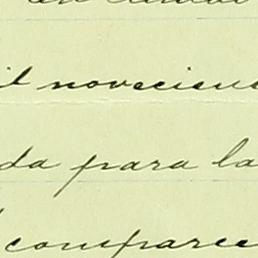 il novecien
da para la
comparece